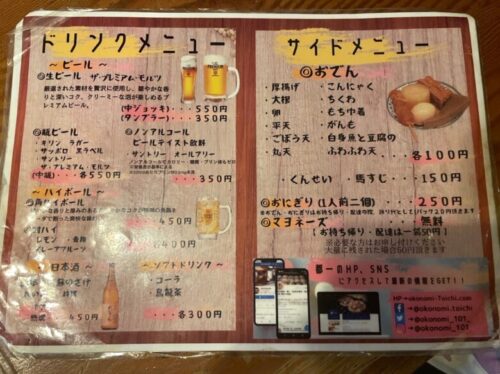 ドリンクメニュー
～ビール～
◎生ビール ザ・プレミアム・モルツ
厳選された素材を贅沢に使用し、華やかな香
りと深いコク、クリーミーな泡が楽しめるプ
レミアムビール。
(中ジョッキ)・・・550円
(タンブラー)・・・350円
◎瓶ビール
・キリン ラガー
・サッポロ 黒ラベル
・サントリー
ザ・プレミアム・モルツ
(中瓶)・・各550円
◎ノンアルコール
ビールテイスト飲料
・サントリー オールフリー
・・・350円
～ハイボール～
◎角ハイボール
450円
レモン ・青梅
グレープフルーツ
・・・各400円
日本酒～
・・450円
～ソフトドリンク～
・コーラ
・烏龍茶
・・・各300円
サイドメニュー
◎おでん
・厚揚げ ・こんにゃく
・大根 ・ちくわ
・卵 ・もち巾着
・平天 ・がんも
・ごぼう天 ・白身魚と豆腐の
・丸天 ふわふわ天
・・・各100円
・くんせい ・馬すじ・・・150円
◎おにぎり(1人前二個)・・・250円
◎マヨネーズ ・・・無料
(お持ち帰り・配達は一袋50円)
※必要な方はお申し付けください
大量に残された場合60円頂きます
都一のHP、SNS
にアクセスして最新の情報をGET!!
HP→okonomi-Toichi.com
→@okonomi.toichi
→@okonomi_101_
→@okonomi_101